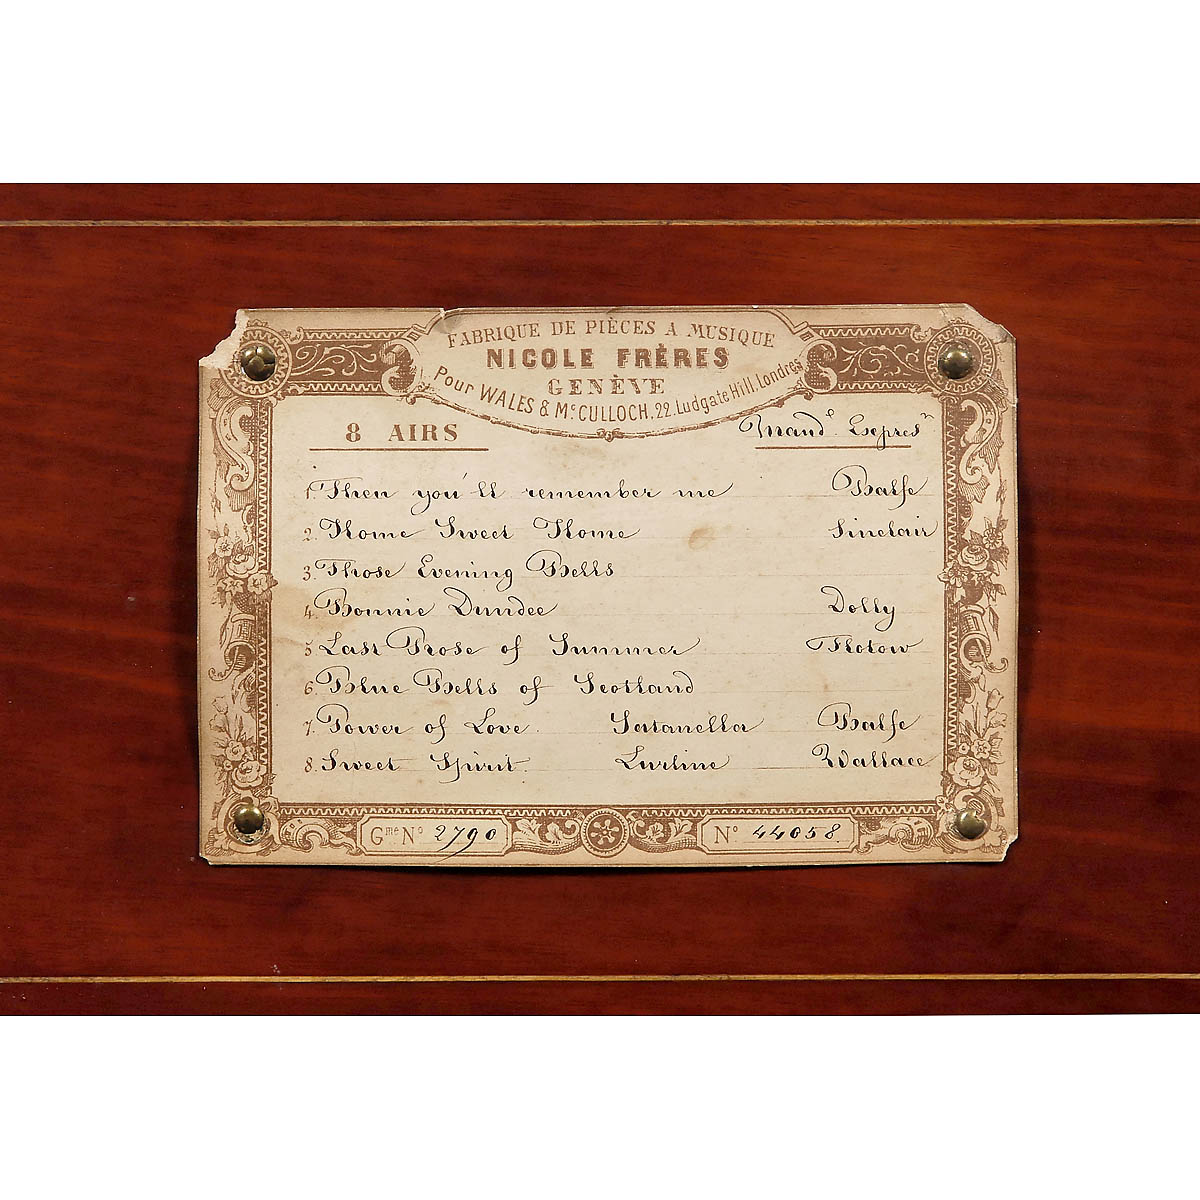 FABRIQUE DE PIÈCES A MUSIQUE
NICOLE FRÈRES
GENÈVE
Pour WALES & Mc CULLOCH, 22. Ludgate Hill, Londres
8 AIRS Mand.e Expres.n
1. Then you'll remember me Balfe
2. Home Sweet Home Sinclair
3. Those Evening Bells
4. Bonnie Dundee Dolly
5. Last Rose of Summer Flotow
6. Blue Bells of Scotland
7. Power of Love Satanella Balfe
8. Sweet Spirit Lurline Wallace
Gme No 2790 No 44058.